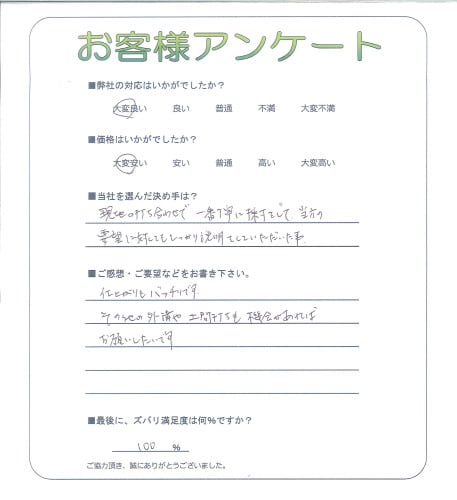 お客様アンケート
■弊社の対応はいかがでしたか？
大変良い 良い 普通 不満 大変不満
■価格はいかがでしたか？
大変安い 安い 普通 高い 大変高い
■当社を選んだ決め手は？
現地打ち合わせで一番丁寧に採寸をして、当方の
要望に対してもしっかり説明をしていただいた事
■ご感想・ご要望などをお書き下さい。
仕上がりもバッチリです
その他の外構や土間打ちも機会があれば
お願いしたいです
■最後に、ズバリ満足度は何％ですか？
100 ％
ご協力頂き、誠にありがとうございました。